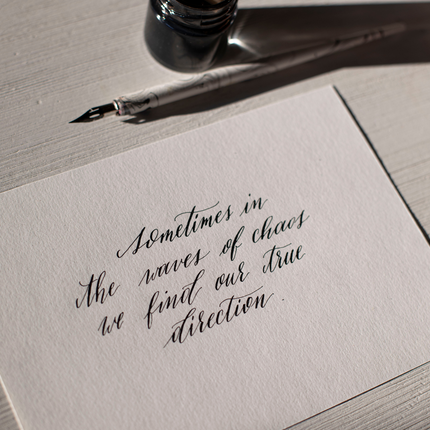 sometimes in
the waves of chaos
we find our true
direction.